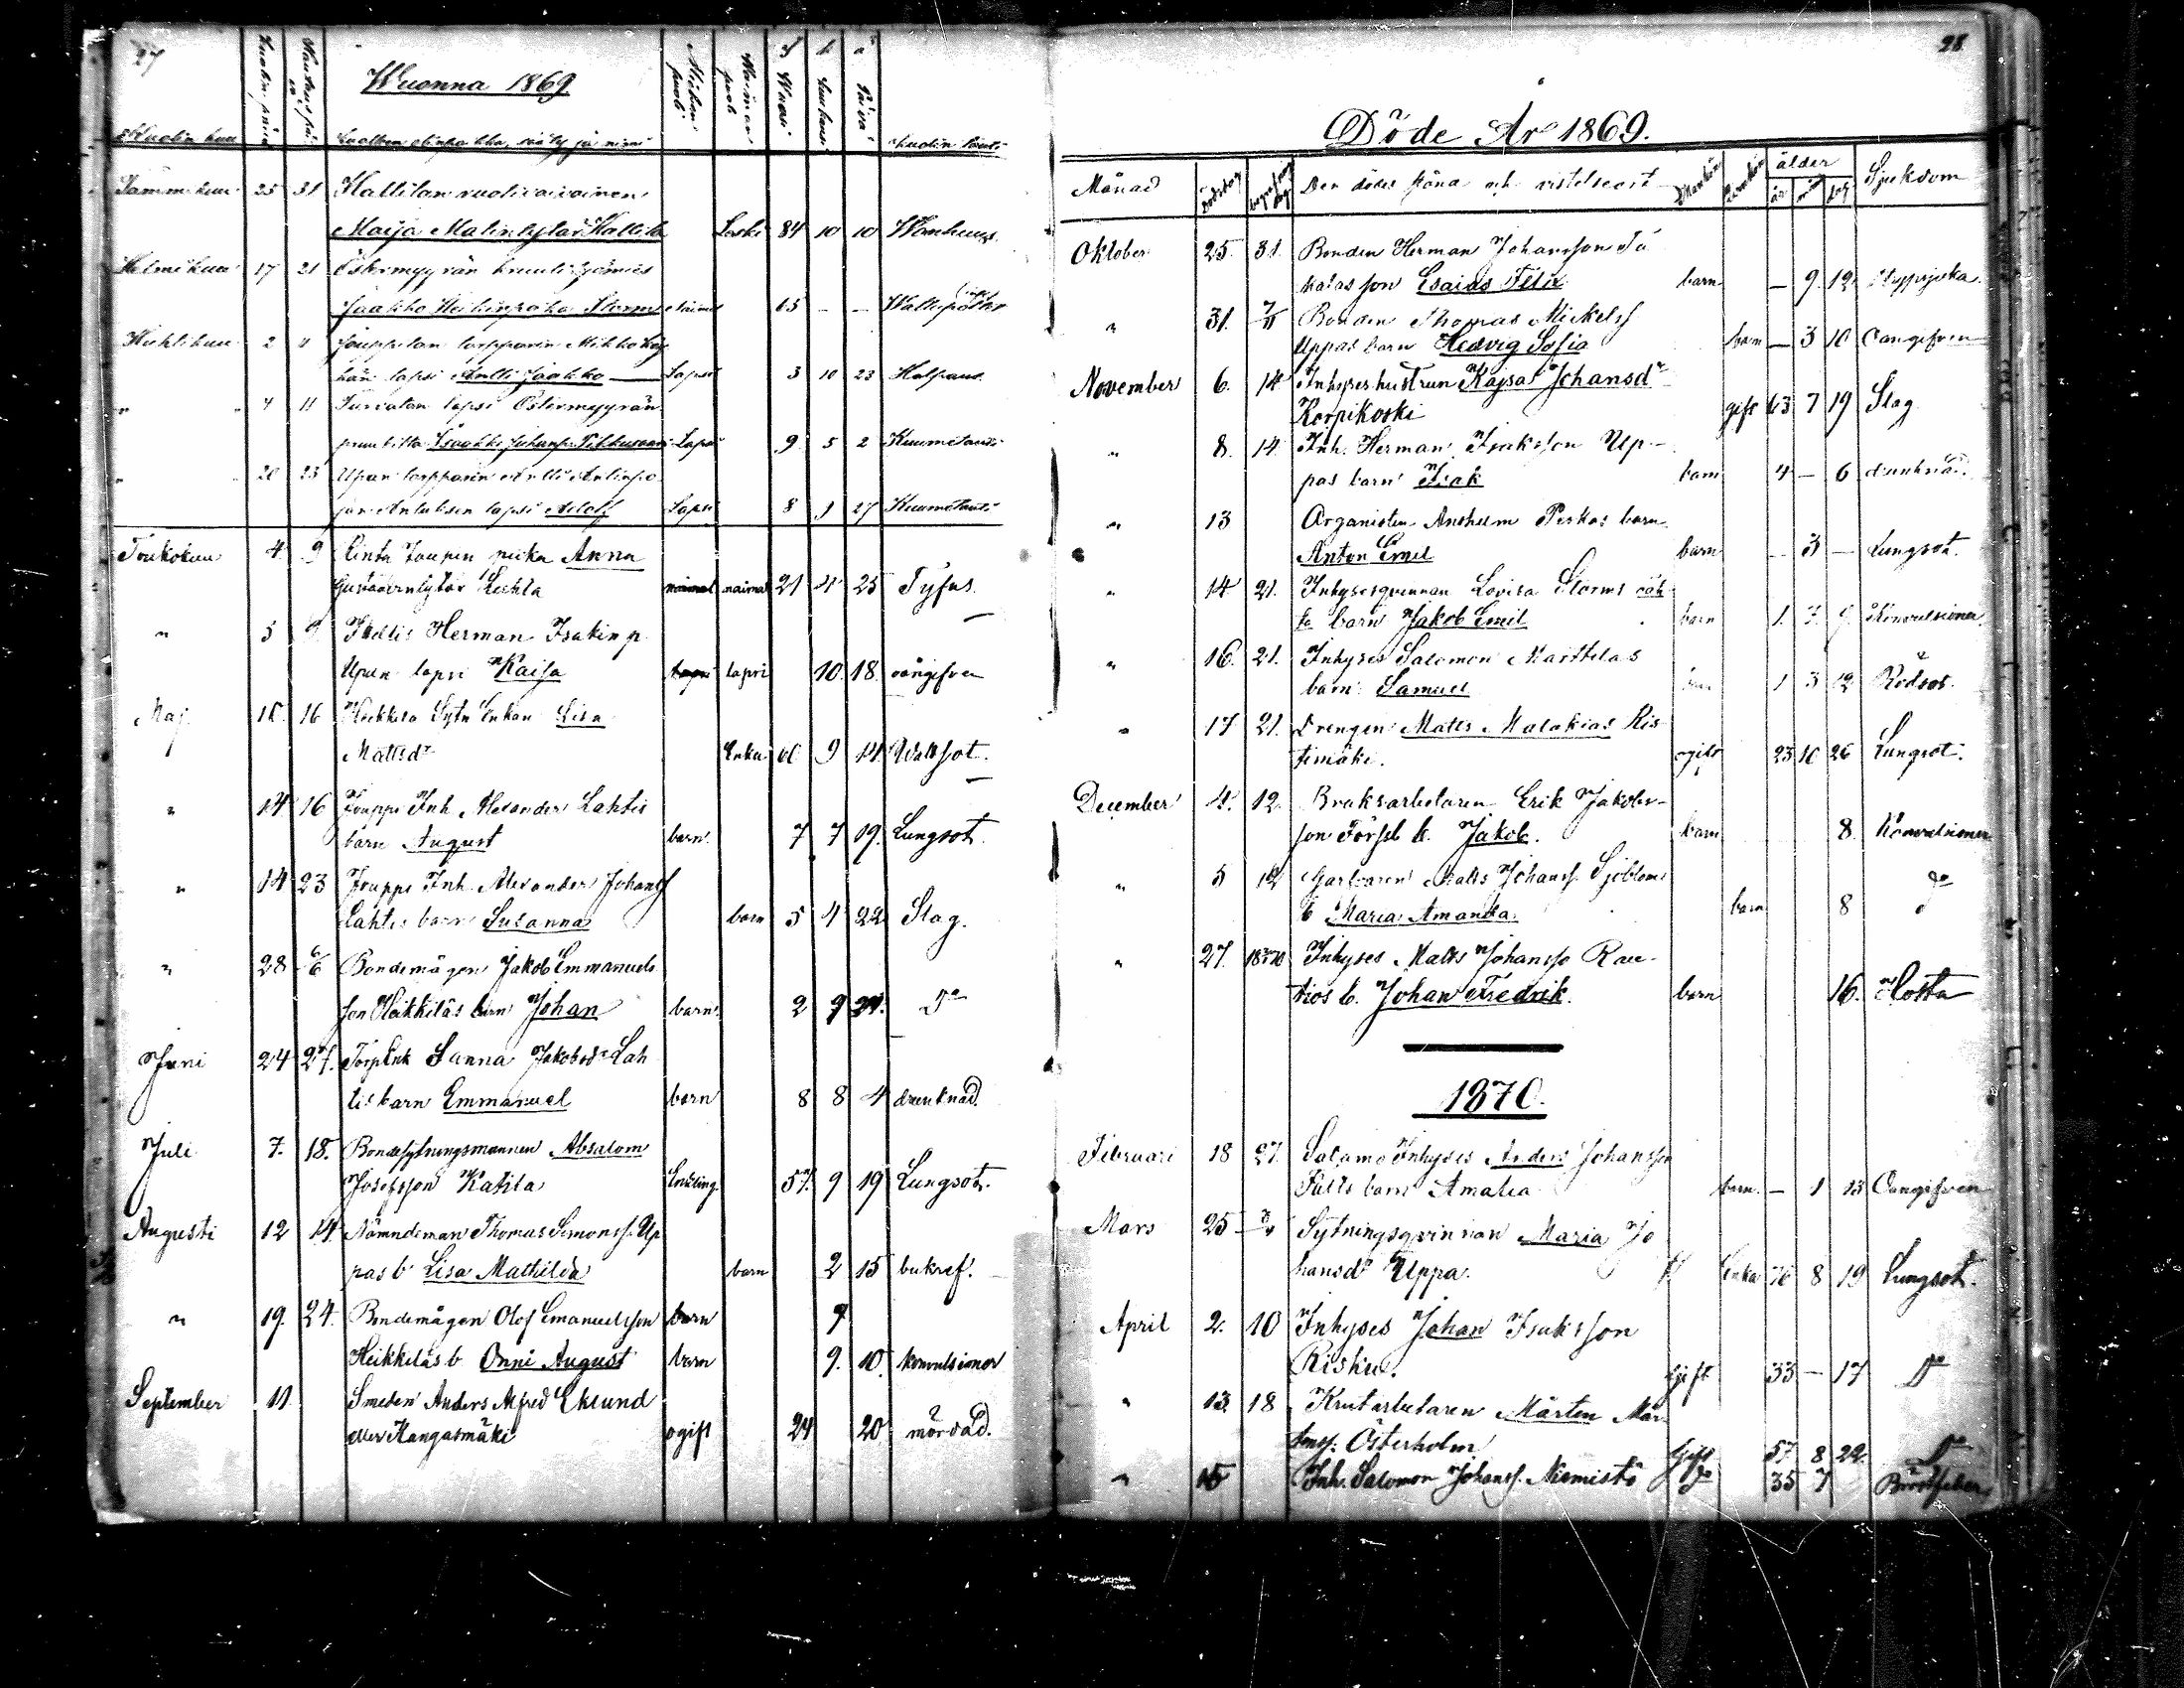 27
Wuonna 1869
Kuolin kuu Kuolin päivä Kuolleen olinpaikka, sääty ja nimi Miehen puoli Waimon puoli Wuosi Kuukausi Päivä Kuolin tauti
Tammikuu 25 31 Kallilan ruotivaivainen
Maija Matintytär Kallila Leski 84 10 10 Wanhuus.
Helmikuu 17 21 Östermyyrän
Jaakko Heikinpoika Storm 65 — —
Huhtikuu 2 11 Jouppilan torpparin Mikko
lapsi Antti Jaakko — Lapsi 3 10 23 Halpaus
" 4 11 Turvaton lapsi Östermyyrän
Lapsi 9 5 2 Kuumetauti
" 20 25 Upan torpparin Antti Antinpo-
jan lapsi Adolf Lapsi 8 1 27 Kuumetauti
Toukokuu 4 9 Anna
Lehto naimat naimat 21 4 25 Tyfus.
" 5 9 Itellis Herman Isakin p.
Upan lapsi Kaisa lapsi lapsi 10. 18. oångifven
Maj 10. 16 Heikkilä Sytn Enkan Lisa
Mattsdr Enka 66 9 14 Wattsot.
" 14. 16 Jouppi Inh. Alexander Lahtis
barn August barn 7 7 19. Lungsot.
" 14 23 Jouppi Inh. Alexander Johanss
Lahtis barn Susanna barn 5 4 22 Slag.
" 28 6/6 Bondemågen Jakob Emmanuels
son Heikkiläs barn Johan barn 2 9 21. Do
Juni 24 27. TorpEnk Sanna Jakobsdr Lah
tis barn Emmanuel barn 8 8 4 drunknad.
Juli 7. 18. Bondesytningsmannen Absalom
Josefsson Katila Enkling 57. 9 19 Lungsot.
Augusti 12 14. Nämndeman Thomas Simonss. Up
pas b Lisa Mathilda barn 2 15 bukref.
" 19. 24. Bondemågen Olof Emanuelsson barn 9
Heikkiläs b. Onni August barn 9. 10. konvulsioner
September 11 Smeden Anders Alfred Eklund
eller Kangasmäki ogift 24 20 mördad.
28.
Döde År 1869.
Månad Dödsdag begrafningsdag Den dödes stånd och vistelseort Mankön Qvinkön ålder år mån dag Sjukdom
Oktober 25. 31. Bonden Herman Johansson
son Esaias Felix barn — 9. 12. Stryppsjuka.
" 31. 7/11 Bonden Thomas Mickelss
Uppas barn Hedvig Sofia barn — 3 10 Oangifven
November 6. 14 Inhyseshustrun Kajsa Johansdr
Korpikoski gift 63 7 19 Slag
" 8. 14. Inh. Herman Isaksson Up-
pas barn Isak barn 4 — 6 drunknad.
" 13 Organisten Anshelm Perkos barn
Anton Emil barn — 3 — Lungsot.
" 14 21. Inhysesqvinnan Lovisa Storms oäk
ta barn Jakob Emil barn 1. 7. 9. Konvulsioner
" 16. 21. Inhyses Salomon Marttilas
barn Samuel 1 3 12 Rödsot.
" 17 21. Drengen Matts Malakias Ris-
timäki. ogift 23 10 26 Lungsot.
December 4. 12. Bruksarbetaren Erik Jakobs-
son b. Jakob. barn 8. Konvulsioner
" 5 12 Garfvaren Matts Johanss. Sjöblom
b Maria Amanda. barn 8 do
" 27. Inhyses Matts Johansso Rau-
tios b. Johan Fredrik. barn 16. Hosta
1870.
Februari 18 27. Salamo Inhyses Anders Johansson
Fälts barn Amalia barn. — 1 13 Oangifven
Mars 25 Sytningsqvinnan Maria Jo
hansdr Uppa. Enka 76 8 19 Lungsot.
April 2. 10 Inhyses Johan Isaksson
Risku. Gift 33 — 17 Do
" 13. 18 Krutarbetaren Mårten Mår-
tenss. Österholm Gift 57 8 22. Do
" 15 Inh. Salomon Johanss. Niemistö do 35 7 Bröstfeber